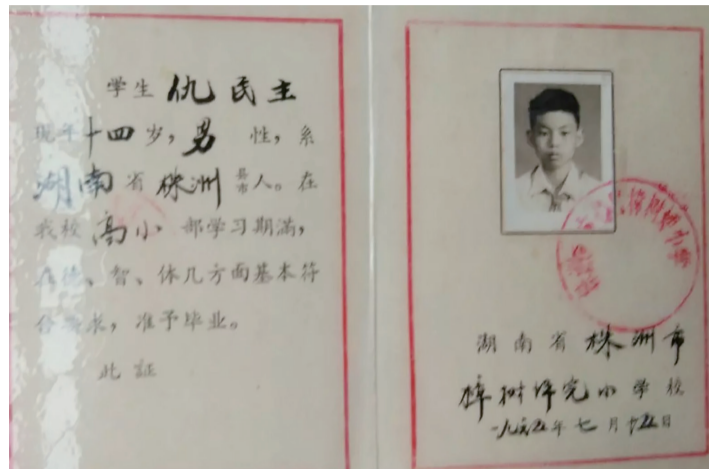 学生 仇民主
现年十四岁，男 性，系
湖南省株洲县市人。在
我校高小部学习期满，
在德、智、体几方面基本符
合要求，准予毕业。
此证
湖南省株洲市
樟树坪完小学校
一九六五年七月十五日